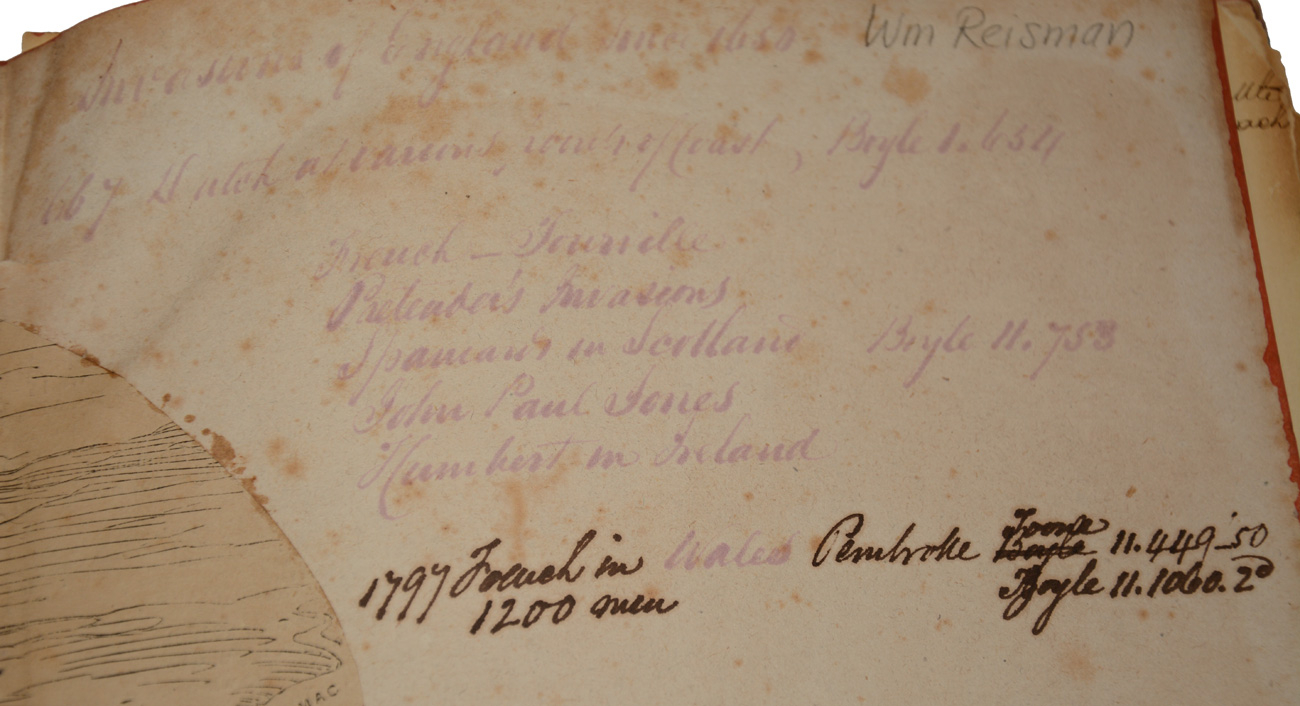 Wm Reisman
Invasions of England since 1650
1667 Dutch at various points of Coast, Boyle 1.654
French — Tourville
Pretender's Invasions
Spaniards in Scotland Boyle 11.753
John Paul Jones
Humbert in Ireland
1797 French in Wales Pembroke Toone 11.449-50
1200 men Boyle 11.1060.2d
MAC